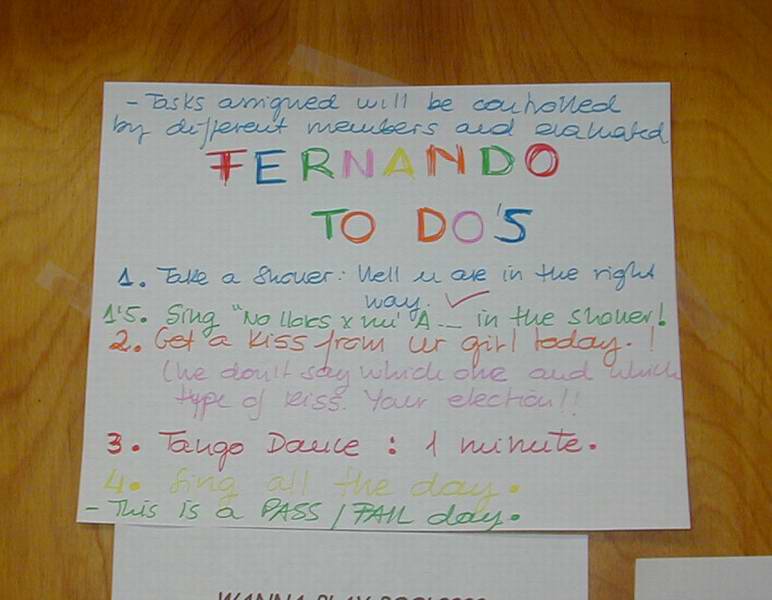 - Tasks assigned will be controlled
by different members and evaluated
FERNANDO
TO DO'S
1. Take a shower: Well u are in the right
way. ✓
1'5. Sing "No llores x mi A... in the shower!
2. Get a kiss from ur girl today. !
(We don't say which one and which
type of kiss. Your election!!
3. Tango Dance : 1 minute.
4. Sing all the day.
- This is a PASS / FAIL day.
WANNA PLAY